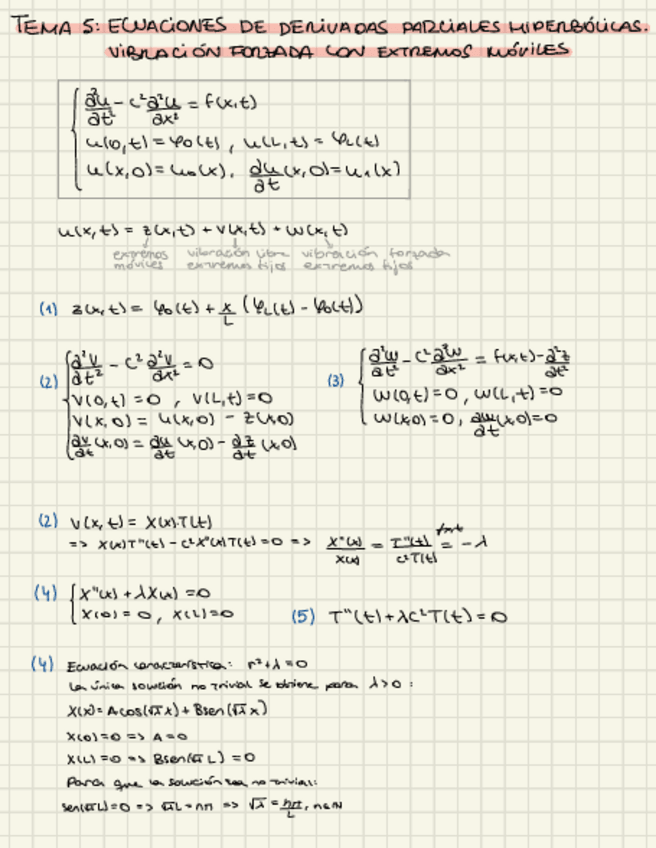 TEMA 5: ECUACIONES DE DERIVADAS PARCIALES HIPERBÓLICAS.
VIBRACIÓN FORZADA CON EXTREMOS MÓVILES
∂²u/∂t² - c² ∂²u/∂x² = f(x,t)
u(0,t) = φ₀(t) , u(L,t) = φ_L(t)
u(x,0) = u₀(x), ∂u/∂t (x,0) = u₁(x)
u(x,t) = z(x,t) + v(x,t) + w(x,t)
extremos móviles vibración libre extremos fijos vibración forzada extremos fijos
(1) z(x,t) = φ₀(t) + x/L (φ_L(t) - φ₀(t))
(2) ∂²v/∂t² - c² ∂²v/∂x² = 0
v(0,t) = 0 , v(L,t) = 0
v(x,0) = u(x,0) - z(x,0)
∂v/∂t (x,0) = ∂u/∂t (x,0) - ∂z/∂t (x,0)
(3) ∂²w/∂t² - c² ∂²w/∂x² = f(x,t) - ∂²z/∂t²
w(0,t) = 0 , w(L,t) = 0
w(x,0) = 0 , ∂w/∂t (x,0) = 0
(2) v(x,t) = X(x).T(t)
=> X(x)T''(t) - c²X''(x)T(t) = 0 => X''(x)/X(x) = T''(t)/c²T(t) = -λ
(4) X''(x) + λX(x) = 0
X(0) = 0 , X(L) = 0
(5) T''(t) + λc²T(t) = 0
(4) Ecuación característica: r² + λ = 0
La única solución no trivial se obtiene para λ > 0 :
X(x) = Acos(√λ x) + Bsen(√λ x)
X(0) = 0 => A = 0
X(L) = 0 => Bsen(√λ L) = 0
Para que la solución sea no trivial:
sen(√λ L) = 0 => √λ L = nπ => √λ = nπ/L , n∈N